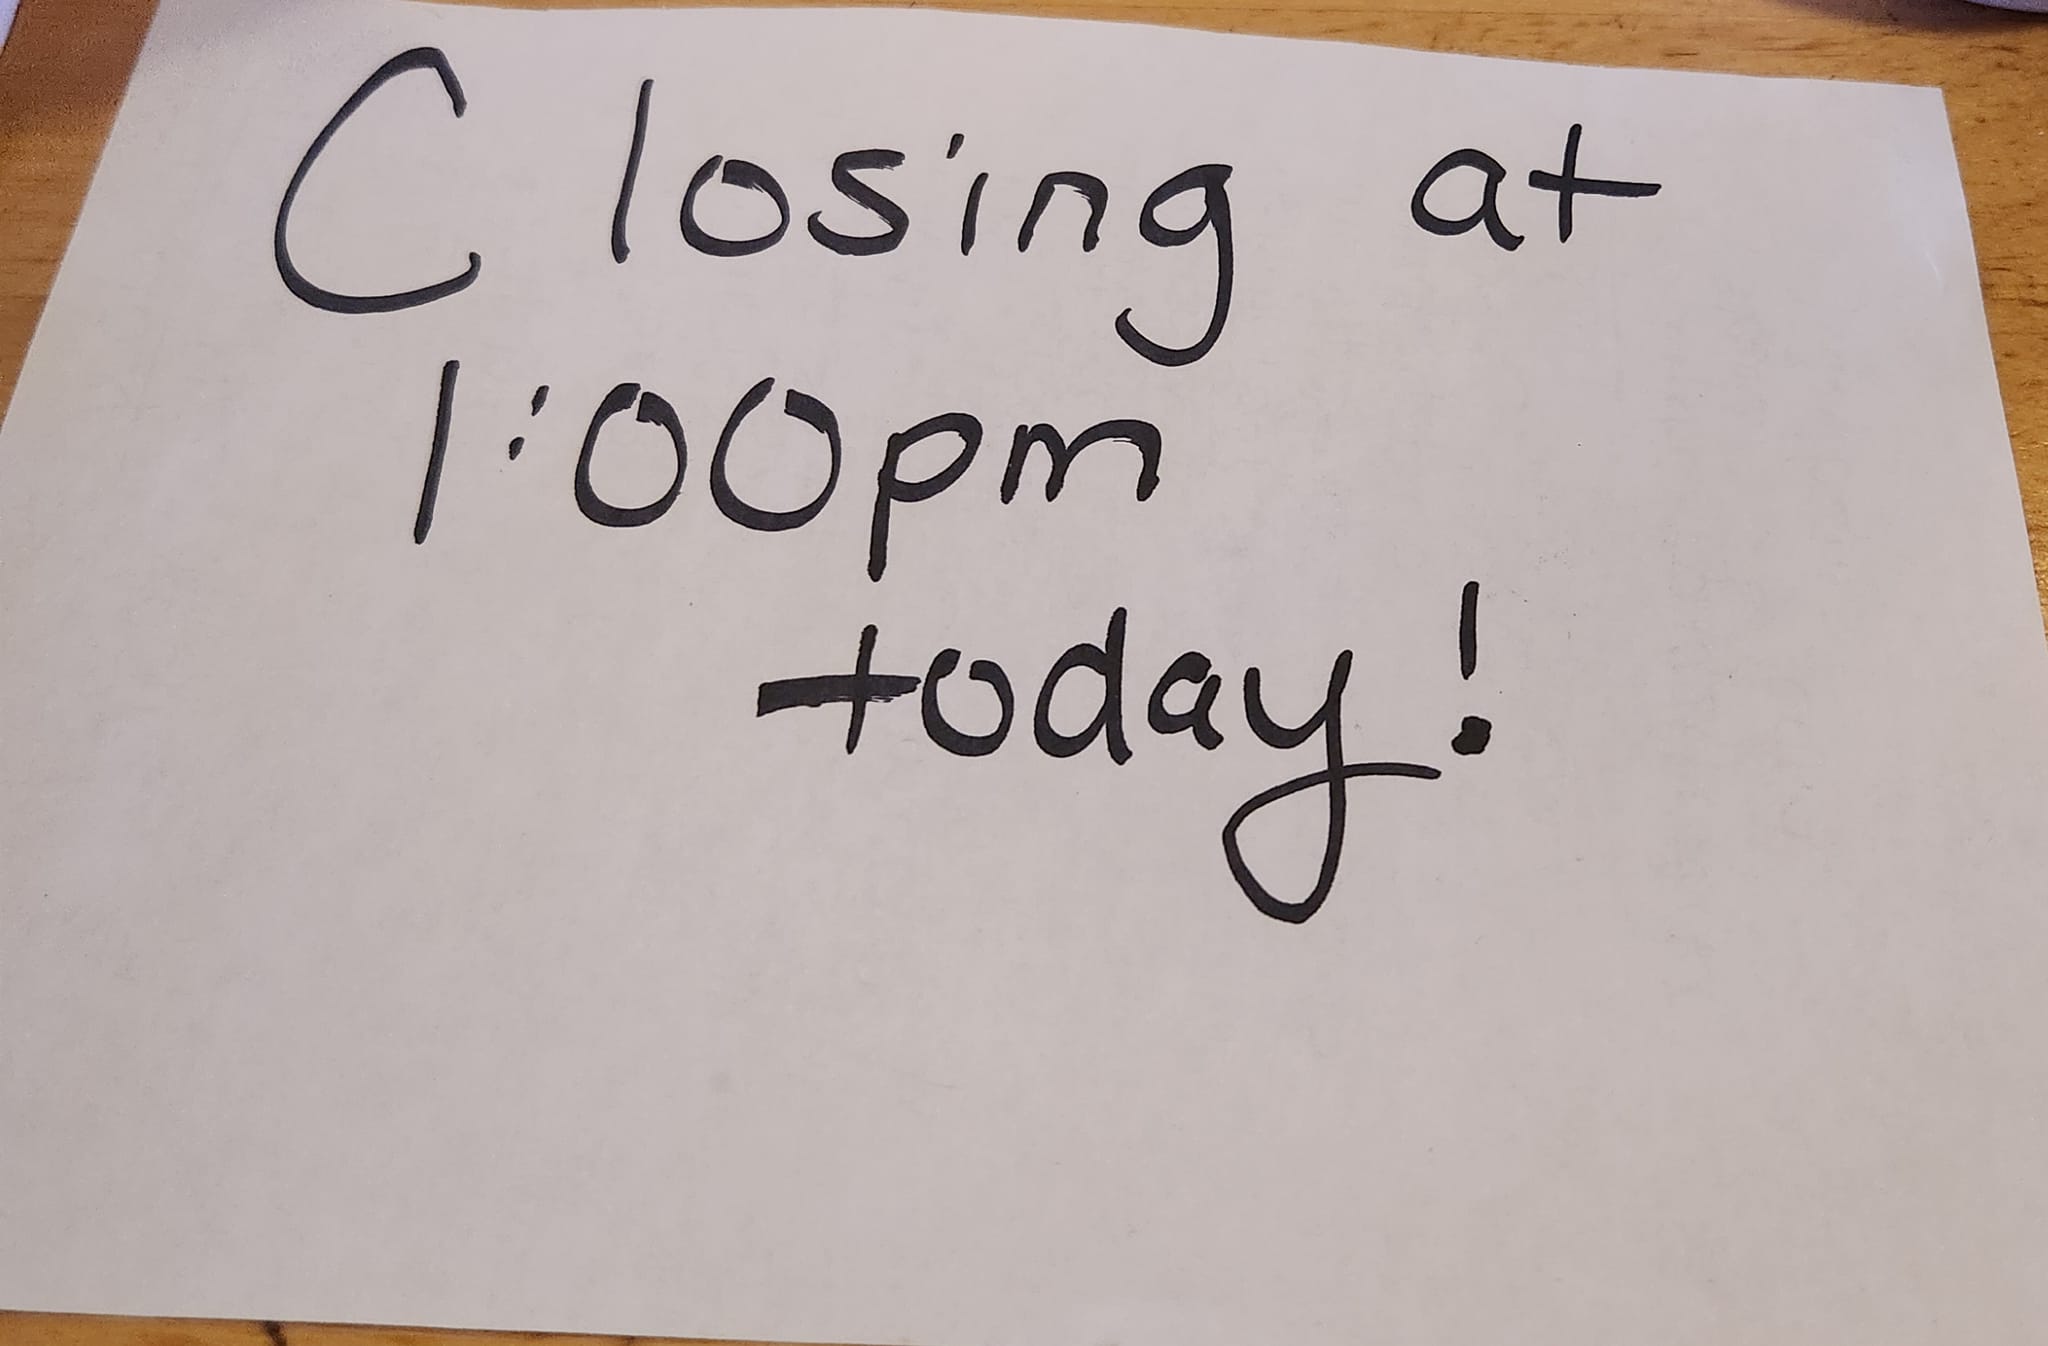 Closing at
1:00pm
today!